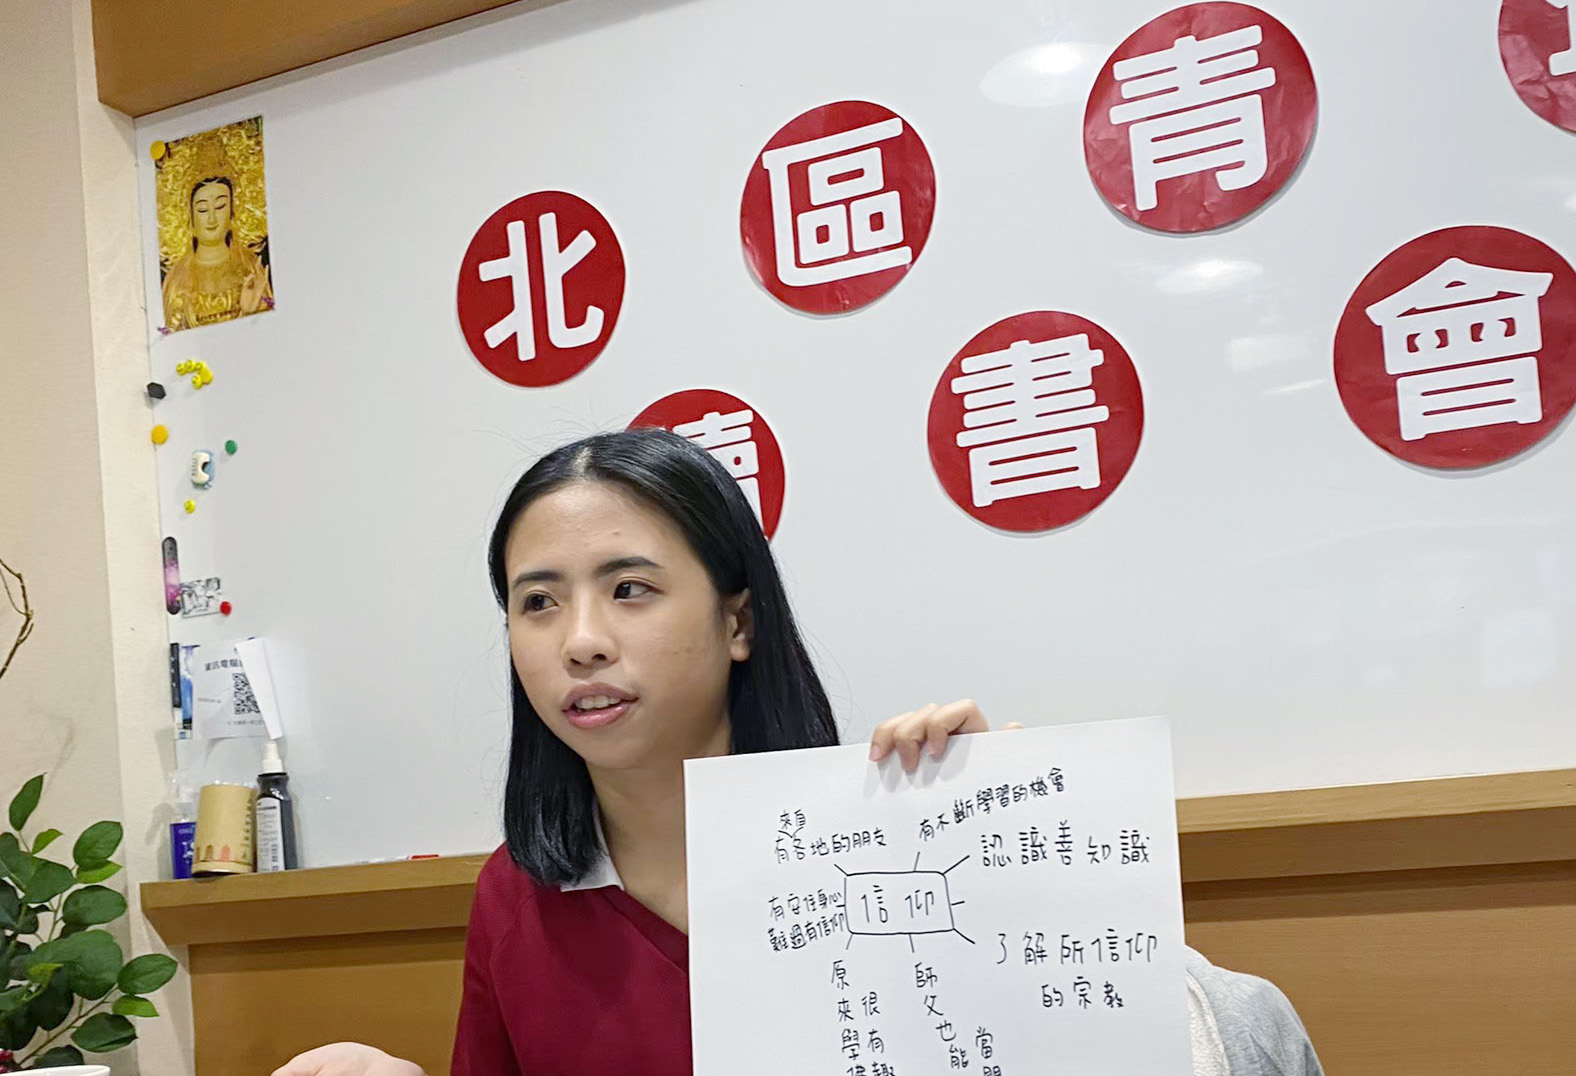 北區青
讀書會
資訊電腦
來自
有各地的朋友
有不斷學習的機會
認識善知識
有安住身心
難過有信仰
信仰
了解所信仰
的宗教
原來學
很有趣
師父也能
當